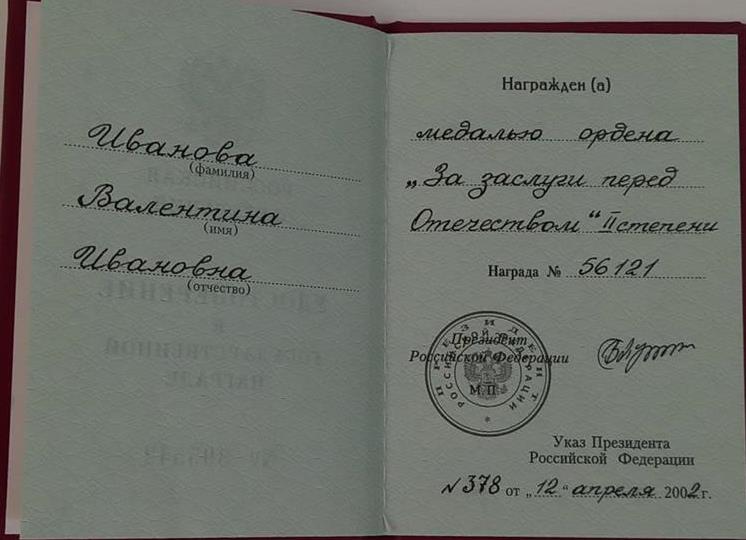 Иванова
(фамилия)
Валентина
(имя)
Ивановна
(отчество)
Награжден (а)
медалью ордена
„За заслуги перед
Отечеством“ II степени
Награда № 56121
Президент
Российской Федерации
МП
ПРЕЗИДЕНТ
РОССИЙСКОЙ ФЕДЕРАЦИИ
Указ Президента
Российской Федерации
N 378 от „12“ апреля 2002 г.